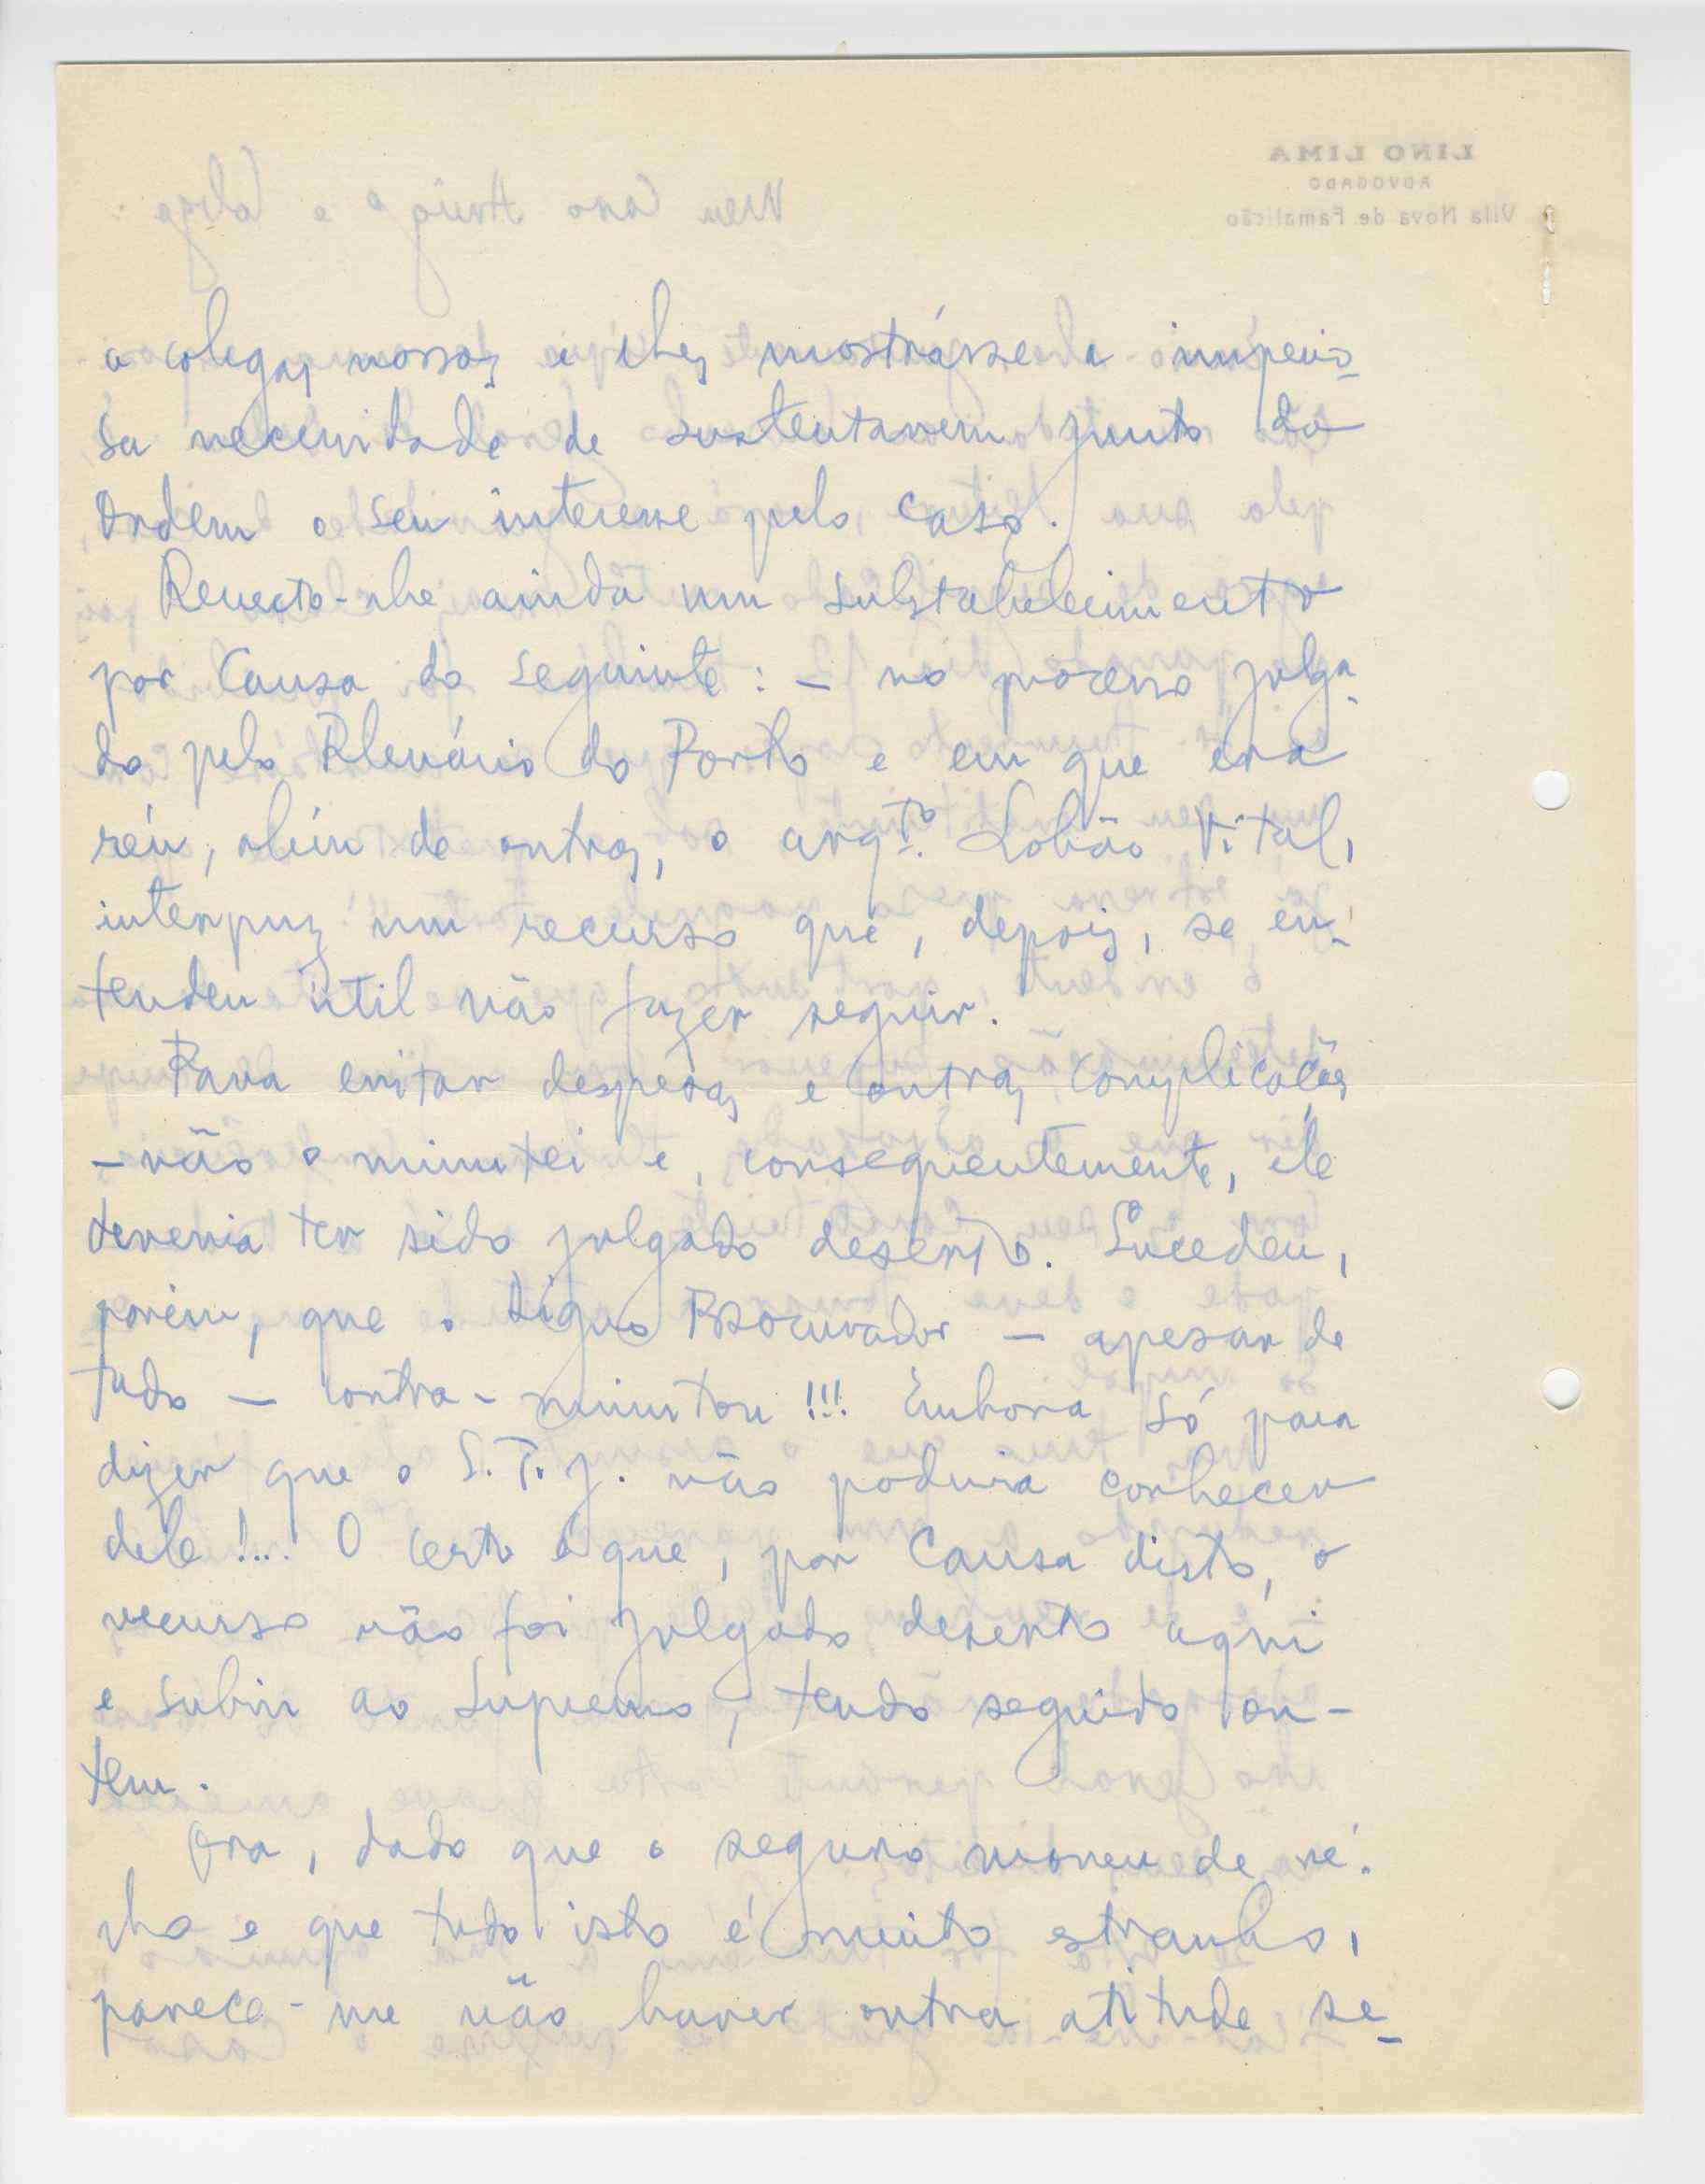 a colegas nossos e lhes mostrásse a imperio-
sa necessidade de sustentarem junto da
Ordem o seu interesse pelo caso.
Remeto-lhe ainda um substabelecimento
por causa do seguinte: – no processo julga-
do pelo Plenário do Porto e em que era
réu, além de outros, o arqto. Lobão Vital,
interpuz um recurso que, depois, se en-
tendeu util não fazer seguir.
Para evitar despezas e outras complicações
– não o minutei e, consequentemente, ele
deveria ter sido julgado deserto. Sucedeu,
porém, que o Digno Procurador – apesar de
tudo – contra-minutou!!! Embora só para
dizer que o S.T.J. não poderia conhecer
dele!... O certo é que, por causa disto, o
recurso não foi julgado deserto aqui
e subiu ao Supremo, tendo seguido on-
tem.
Ora, dado que o seguro morreu de ve-
lho e que tudo isto é muito estranho,
parece-me não haver outra atitude se-
LINO LIMA
ADVOGADO
Vila Nova de Famalicão
Meu Caro Amigo e Colega